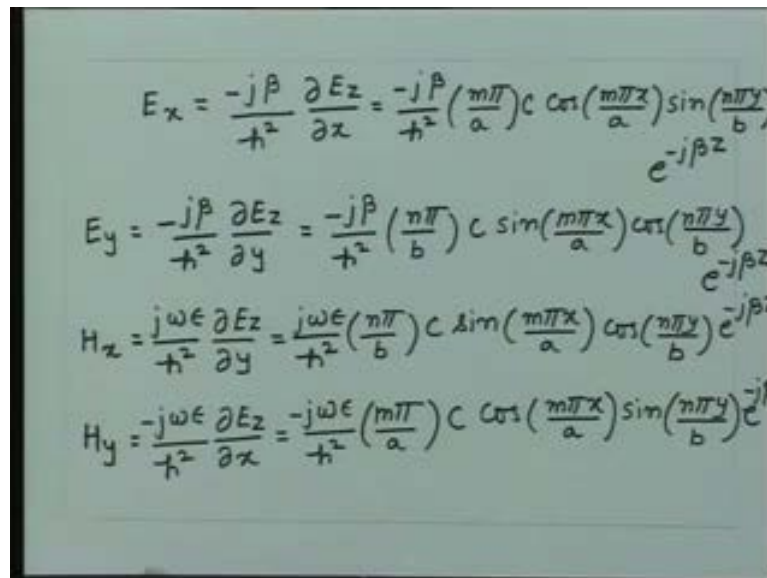 Ex = -jβ/h² ∂Ez/∂x = -jβ/h² (mπ/a) C cos(mπx/a) sin(nπy/b)
e^-jβz
Ey = -jβ/h² ∂Ez/∂y = -jβ/h² (nπ/b) C sin(mπx/a) cos(nπy/b)
e^-jβz
Hx = jωϵ/h² ∂Ez/∂y = jωϵ/h² (nπ/b) C sin(mπx/a) cos(nπy/b) e^-jβz
Hy = -jωϵ/h² ∂Ez/∂x = -jωϵ/h² (mπ/a) C cos(mπx/a) sin(nπy/b) e^-j